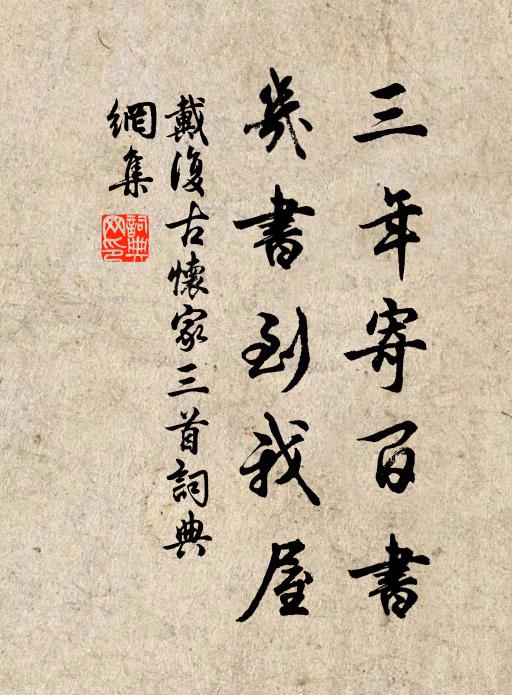 三年寄百書
幾書到我屋
戴復古懷家三首詞典
網集
詞典
网印